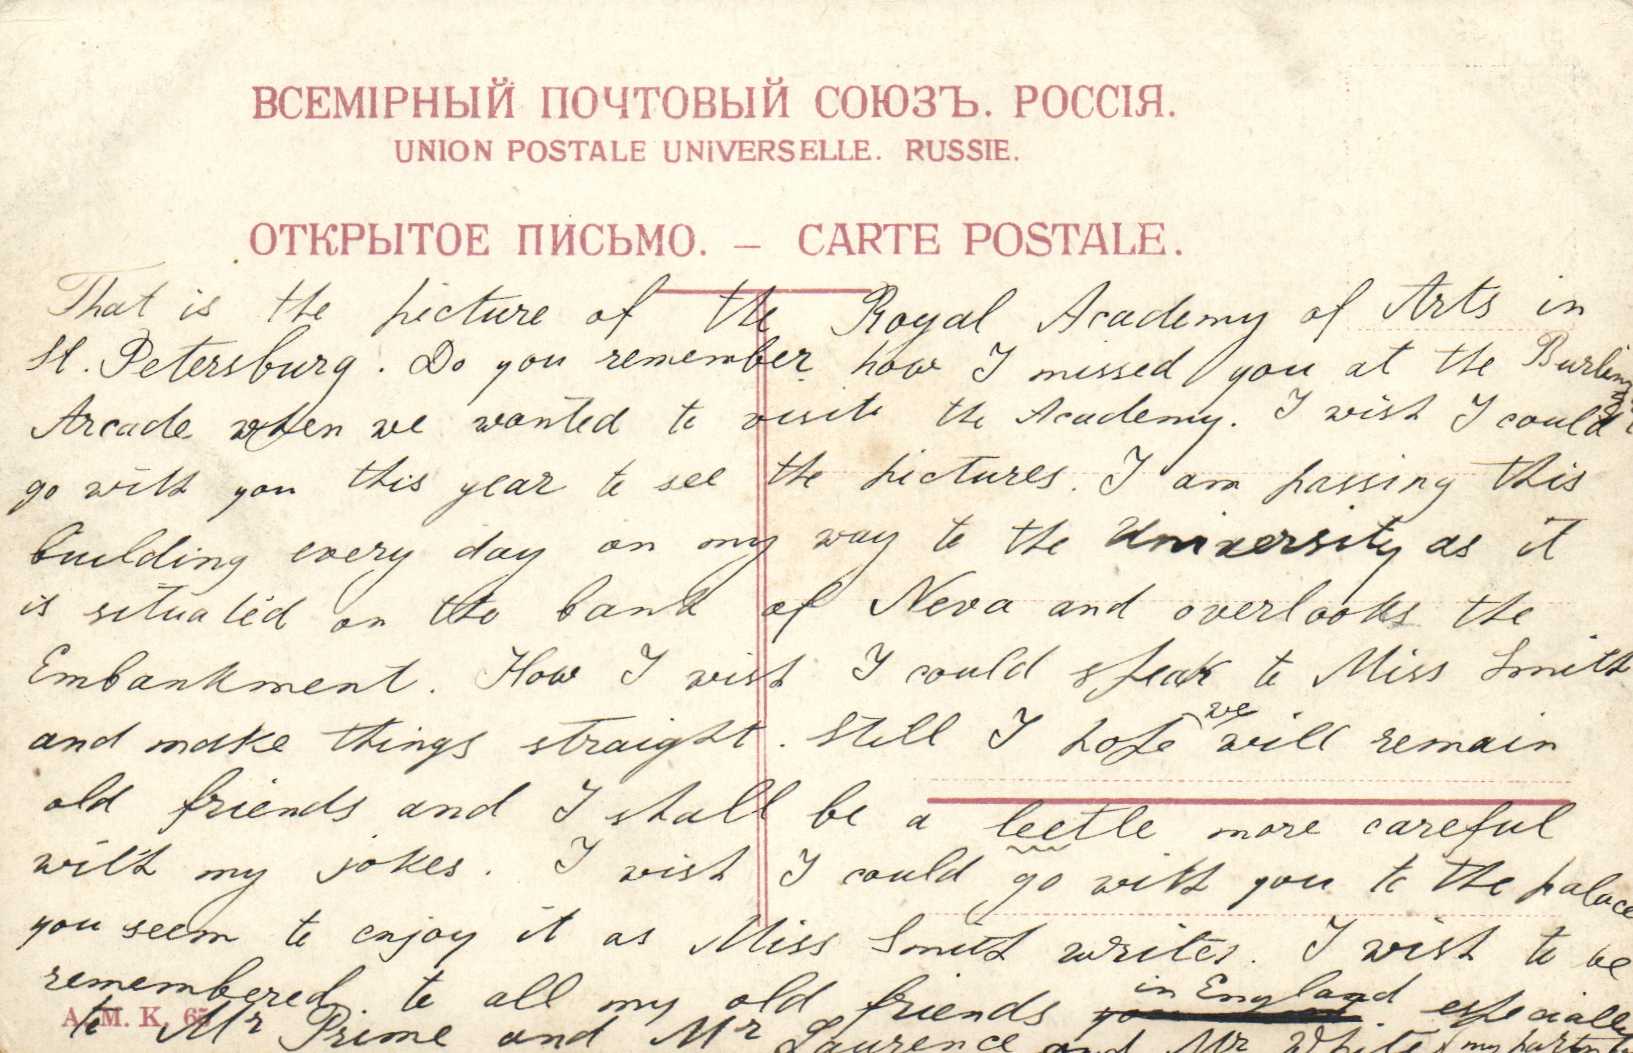 ВСЕМІРНЫЙ ПОЧТОВЫЙ СОЮЗЪ. РОССІЯ.
UNION POSTALE UNIVERSELLE. RUSSIE.
ОТКРЫТОЕ ПИСЬМО. — CARTE POSTALE.
That is the picture of the Royal Academy of Arts in
St. Petersburg. Do you remember how I missed you at the
Arcade when we wanted to visit the Academy. I wish I could
go with you this year to see the pictures. I am passing this
building every day on my way to the University as it
is situated on the bank of Neva and overlooks the
Embankment. How I wish I could speak to Miss Smith
and make things straight. Still I hope we will remain
old friends and I shall be a leetle more careful
with my jokes. I wish I could go with you to the palace
you seem to enjoy it as Miss Smith writes. I wish to be
remembered to all my old friends in England especially
A. M. K. 65
to Mr Prime and Mr Laurence and Mr White my